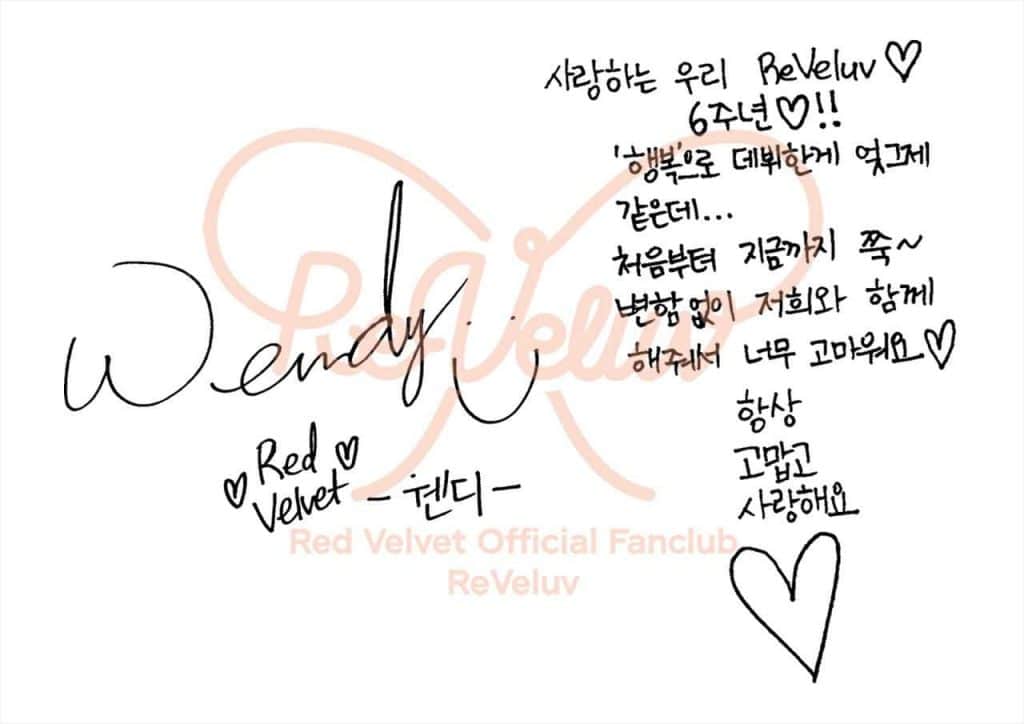 사랑하는 우리 ReVeluv♡
6주년♡!!
'행복'으로 데뷔한게 엊그제
같은데...
처음부터 지금까지 쭉~
변함없이 저희와 함께
해줘서 너무 고마워요♡
항상
고맙고
사랑해요
Wendy
♡ Red Velvet ♡
-웬디-
ReVeluv
Red Velvet Official Fanclub
ReVeluv